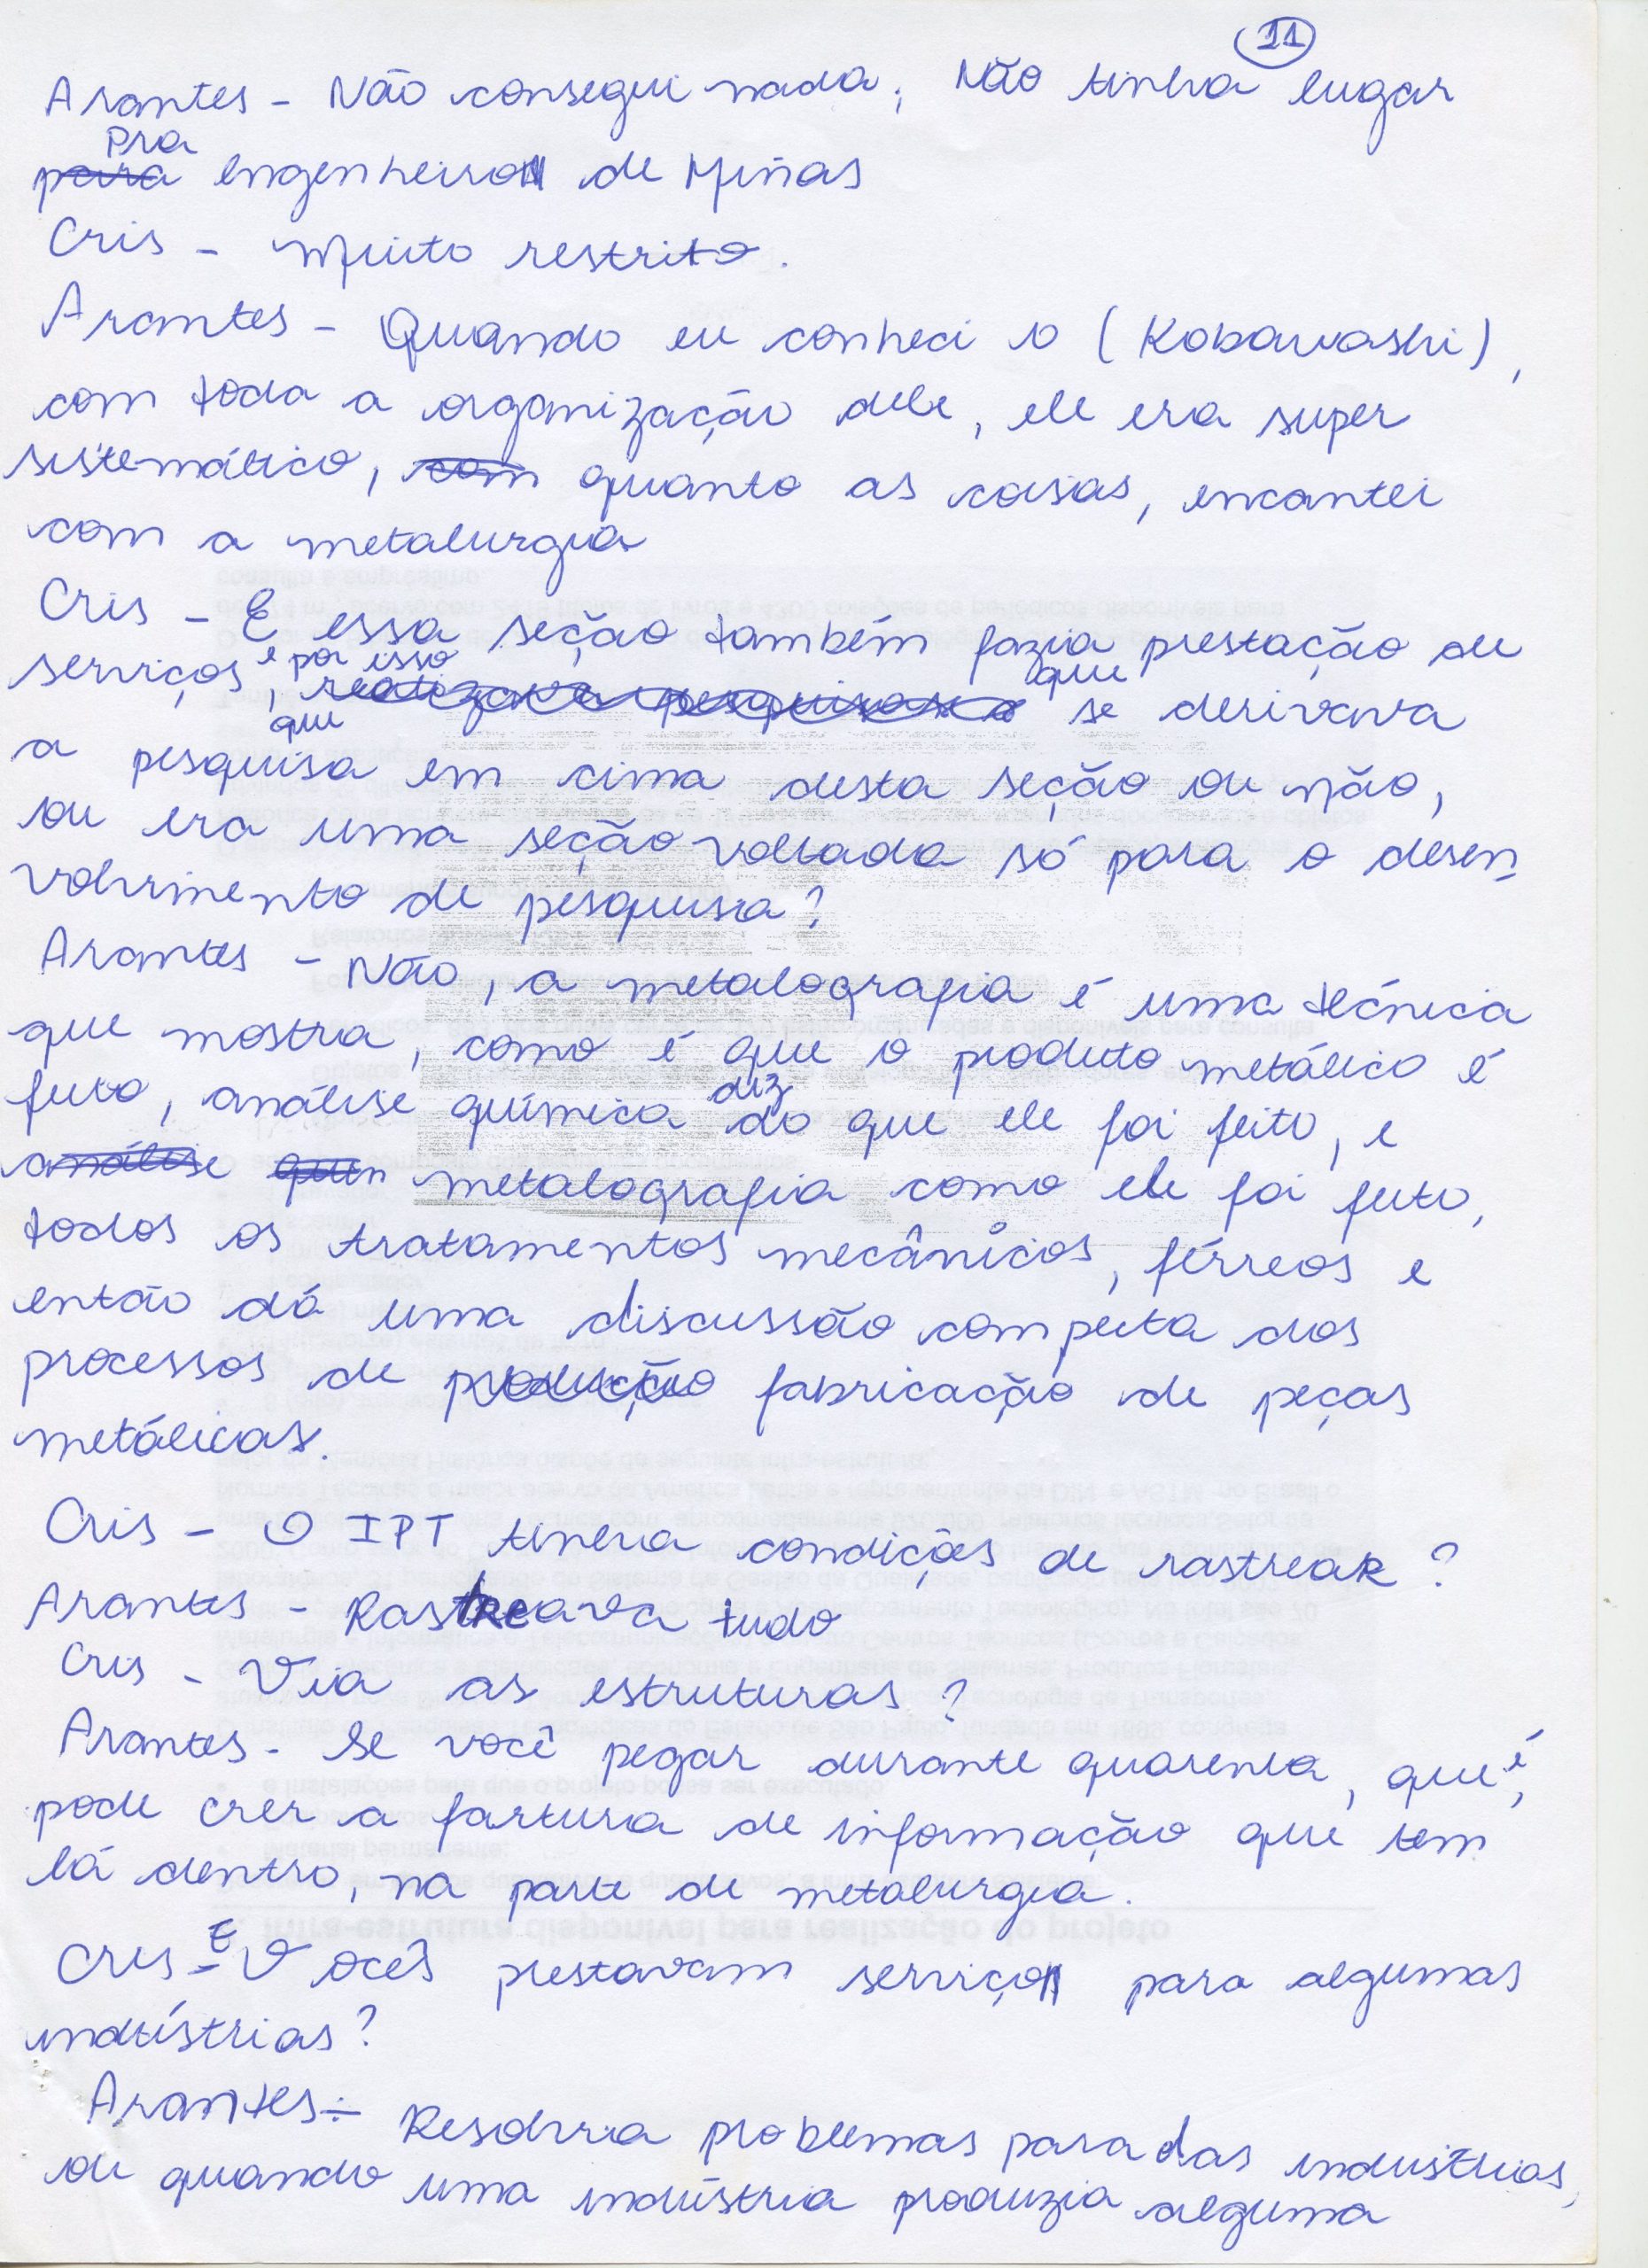 11
Arantes - Não consegui nada, Não tinha lugar
pra
para engenheiro de Minas
Cris - Muito restrito.
Arantes - Quando eu conheci o (Kobawashi),
com toda a organização dele, ele era super
sistemático, com quanto as coisas, encantei
com a metalurgia
Cris - E essa seção também fazia prestação de
serviços, e por isso realizava pesquisas e que se derivava
que
a pesquisa em cima desta seção ou não,
ou era uma seção voltada só para o desen
volvimento de pesquisa?
Arantes - Não, a metalografia é uma técnica
que mostra, como é que o produto metálico é
feito, análise química diz do que ele foi feito, e
análise quim metalografia como ele foi feito,
todos os tratamentos mecânicos, férreos e
então dá uma discussão completa dos
processos de produção fabricação de peças
metálicas.
Cris - O IPT tinha condições de rastrear?
Arantes - Rastreava tudo
Cris - Via as estruturas?
Arantes - Se você pegar durante quarenta, que é,
pode crer a fartura de informação que tem
lá dentro, na parte de metalurgia.
Cris - E Vocês prestavam serviço para algumas
indústrias?
Arantes - Resolvia problemas para das indústrias,
ou quando uma indústria produzia alguma